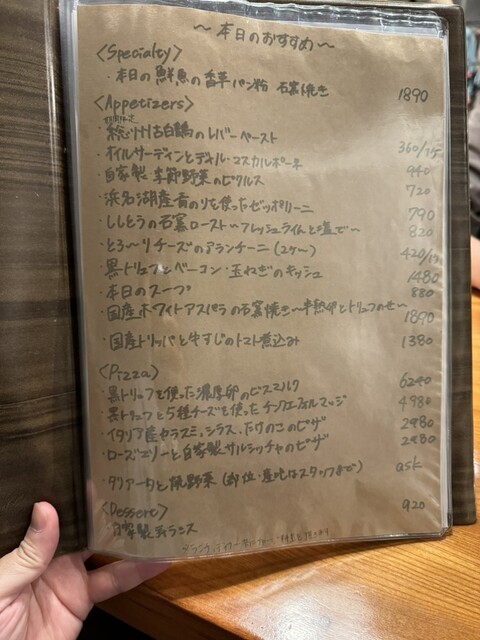 ～本日のおすすめ～
〈Specialty〉
・本日の鮮魚の香草パン粉 石窯焼き 1890
〈Appetizers〉
古白鶏のレバーペースト 360/1ヶ
・オイルサーディンとディル・マスカルポーネ 940
・自家製 季節野菜のピクルス 720
・浜名湖産青のりを使ったゼッポリーニ 790
・ししとうの石窯ロースト～フレッシュライムと塩で～ 820
・とろ～りチーズのアランチーニ(2ヶ～) 420/1ヶ
・黒トリュフとベーコン・玉ねぎのキッシュ 1480
・本日のスープ 880
・国産ホワイトアスパラの石窯焼き～半熟卵とトリュフのせ～ 1890
・国産トリッパと牛すじのトマト煮込み 1380
〈Pizza〉
・黒トリュフを使った濃厚卵のビスマルク 6240
・黒トリュフと5種チーズを使ったチンクエフォルマッジ 4980
・イタリア産カラスミ、シラス、たけのこのピザ 2980
・ローズマリーと自家製サルシッチャのピザ 2980
・タリアータと焼野菜(部位・産地はスタッフまで) ask
〈Dessert〉 920